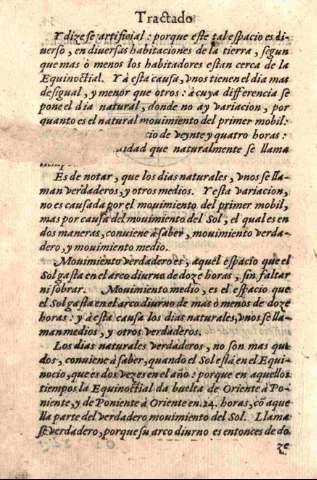 Tractado
Y dizese artificial : porque este tal espacio es di-
uerso , en diuersas habitaciones de la tierra , segun
que mas ò menos los habitadores estan cerca de la
Equinoctial. Y à esta causa, vnos tienen el dia mas
desigual , y menor que otros : à cuya differencia se
pone el dia natural, donde no ay variacion , por
quanto es el natural mouimiento del primer mobil:
cio de veynte y quatro horas :
que naturalmente se llama
Es de notar , que los dias naturales , vnos se lla-
man verdaderos, y otros medios. Y esta variacion,
no es causada por el mouimiento del primer mobil,
mas por causa del mouimiento del Sol , el qual es en
dos maneras, conuiene à saber , mouimiento verda-
dero, y mouimiento medio.
Mouimiento verdadero es , aquel espacio que el
Sol gasta en el arco diurno de doze horas , sin faltar
ni sobrar. Mouimiento medio, es el espacio que
el Sol gasta en el arco diurno de mas ò menos de doze
horas : y à esta causa los dias naturales, vnos se lla-
man medios , y otros verdaderos.
Los dias naturales verdaderos, no son mas que
dos , conuiene à saber, quando el Sol està en el Equi-
nocio, que es dos vezes en el año : porque en aquellos
tiempos la Equinoctial da buelta de Oriente à Po-
niente, y de Poniente à Oriente en 24. horas, cō aque
lla parte del verdadero mouimiento del Sol. Llama
se verdadero, porque su arco diurno es entonces de do
ze